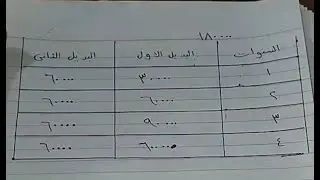 ١٨٠٠٠٠
السنوات البديل الاول البديل الثانى
١ ٣٠٠٠٠ ٦٠٠٠٠
٢ ٦٠٠٠٠ ٦٠٠٠٠
٣ ٩٠٠٠٠ ٦٠٠٠٠
٤ ٦٠٠٠٠ ٦٠٠٠٠